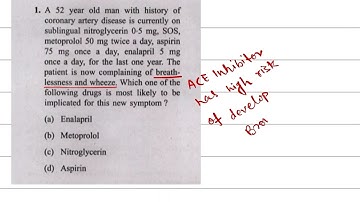 1. A 52 year old man with history of
coronary artery disease is currently on
sublingual nitroglycerin 0·5 mg, SOS,
metoprolol 50 mg twice a day, aspirin
75 mg once a day, enalapril 5 mg
once a day, for the last one year. The
patient is now complaining of breath-
lessness and wheeze. Which one of the
following drugs is most likely to be
implicated for this new symptom ?
(a) Enalapril
(b) Metoprolol
(c) Nitroglycerin
(d) Aspirin
ACE Inhibitor
has high risk
of develop